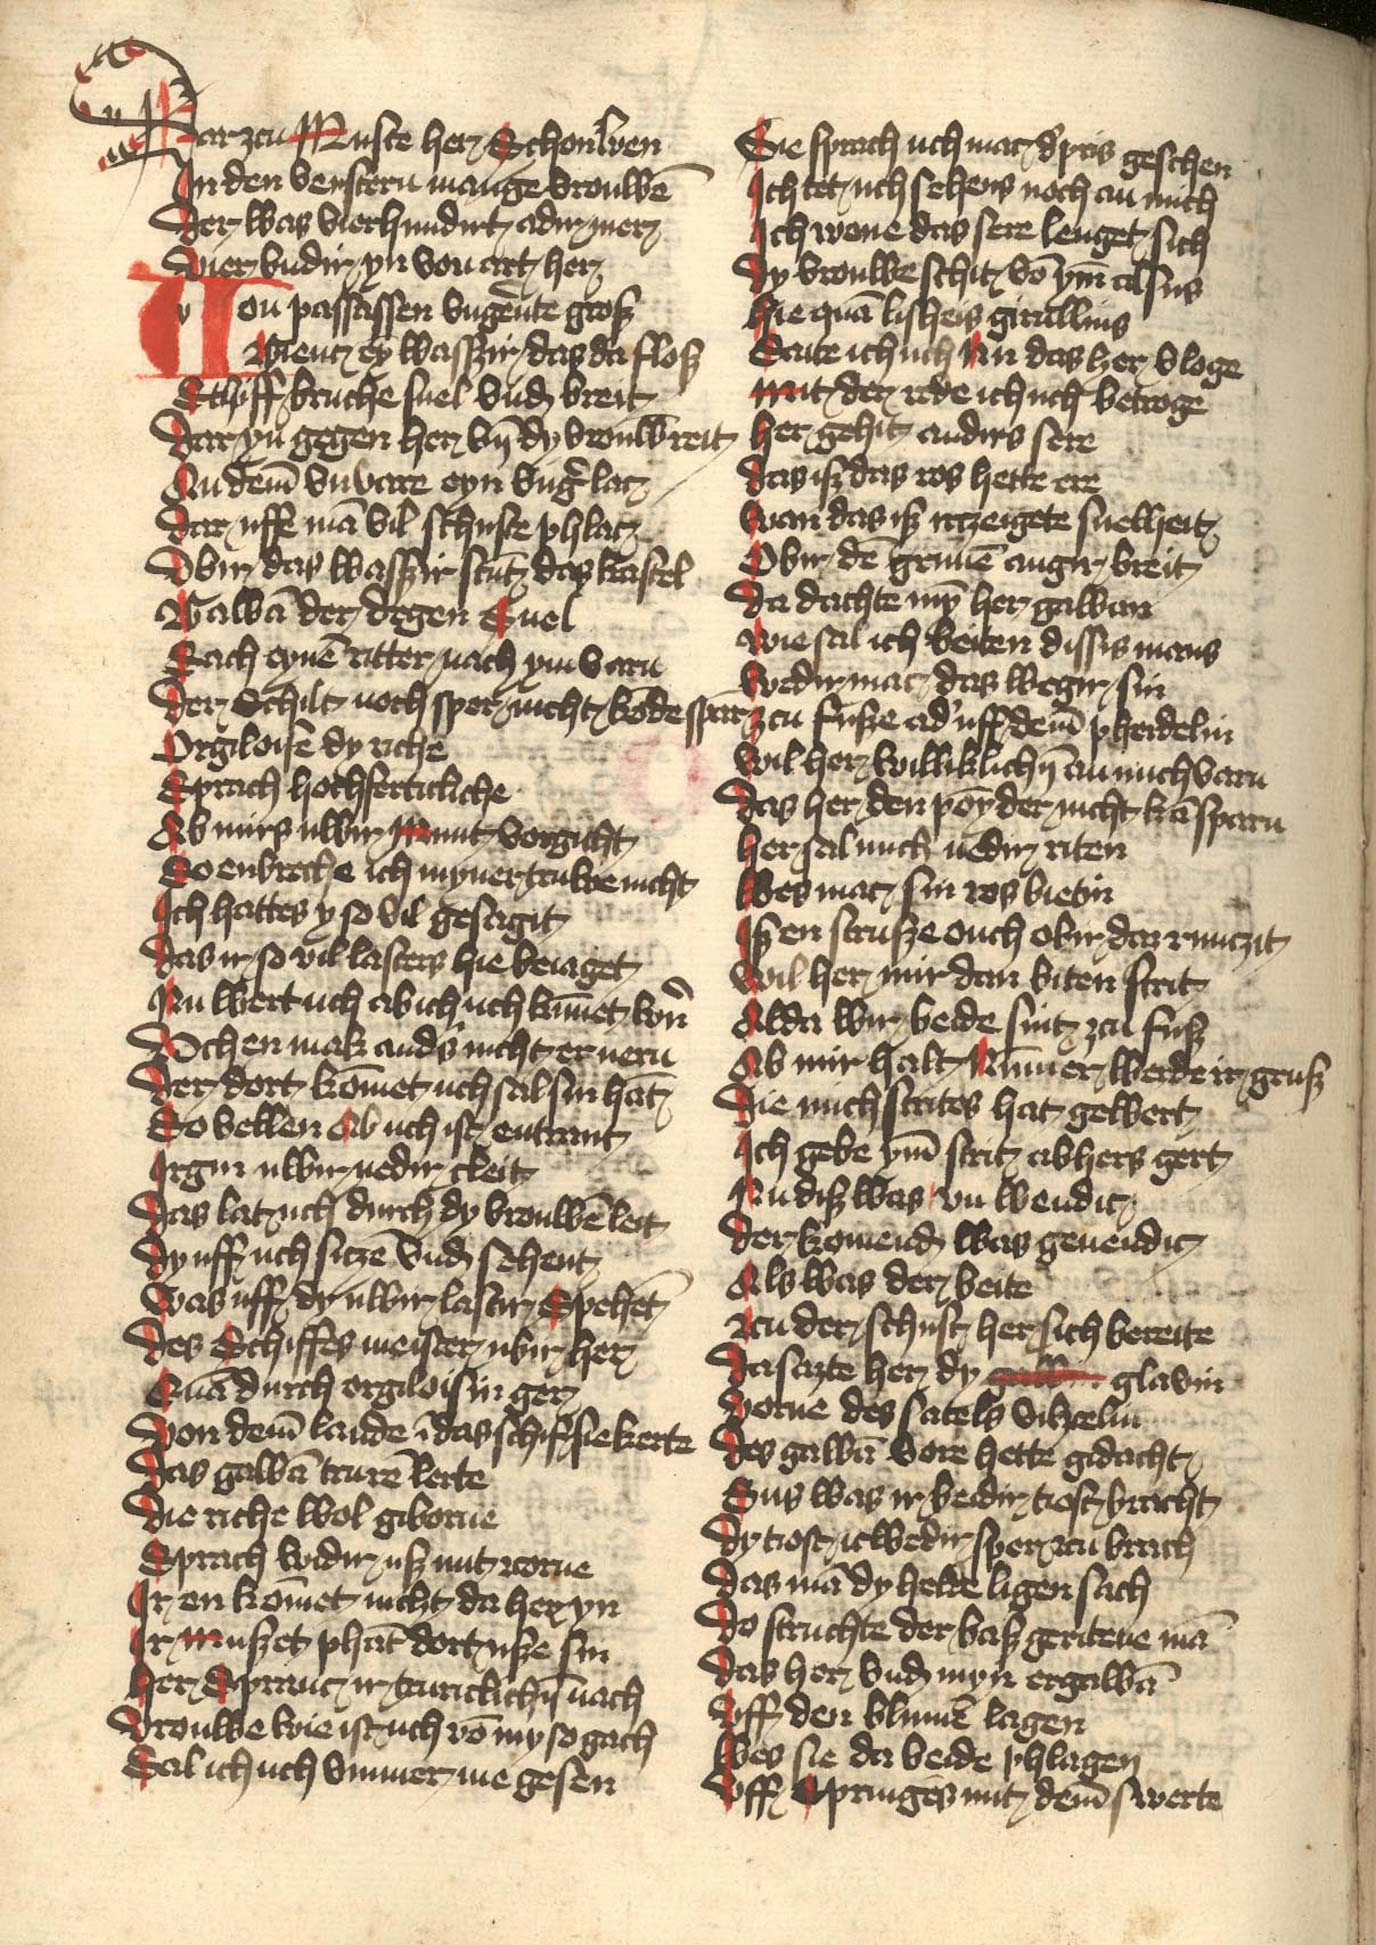 Dar zcu Muste her Schouwen
In den venstern mange vrouwē
Der was vierhundirt adir mer
Vier vndir yn von art her
Von passasсen vngev̓te gros
Gienc ey wasszir das da flosz
Schiff bruche snel vnd breit
Dar yn gegen her vn̄ dy vrouw̄ reit
An dem̄ vuvare eyn vngir̓ lac
Dar uffe mā vil schuste phlac
Obir das wasszir stūt das kastel
Gawā der degen Snel
Sach eynē ritter nach ym varn
Der Schilt noch sper nicht kōde sparn
Orgiloise dy riche
Sprach hochfertickliche
Ab mirs uwir Munt vorgicht
So enbreche ich myner truwe nicht
Ich hattes y so vil gesagit
Das ir so vil lasters hie beiaget
Nu wert uch ab ich uch kūmet wer̓n
Uch en mak and̓s nicht erneru
Der dort kōmet uch sal sin hāt
So vellen Ab uch ist entrant
Irgin uwir nedir cleit
Das lat uch durch dy vrouwē leit
Dy uff uch sitzē vnd sehent
Was uff dy uwir lastir Spehet̄
Des Schiffes meister ubir her
Quā durch orgiloisin ger
Von dem̄ lande ī das schif sie kerte
Das gawā trurē lerte
Die riche wol giborne
Sprach widir usz mit zcorne
Ir en kōmet nicht da her yn
Ir Muszet phāt dort usze sin
Her Sprauc ir truriclichn̄ nach
Vrouwe wie ist uch vō my so gach
Sal ich uch vmmer me gesen
Sie sprach uch mac d̓ pris geschen
Ich tet uch sehens noch an mich
Ich wene das sere lenget sich
Dy vrouwe schit vō ym̄ alsus
Hie quā lisheis girallius
Saite ich uch Nu das her vloge
Mit der rede ich uch betroge
Her gehit andirs sere
Das isz das ros hette ere
Wan das isz irzeigete snelheit
Obir dē grunē angir breit
Da dachte my̅ her gawan
Wie sal ich beiten dissis mans
Wedir mac das wegir sin
Zcu fusze ad̓ uff dem̄ pherdelin
Wil her williklichn̄ an mich varn
Das her den poy̅der nicht kā sparn
Her sal mich nedir riten
Wes mac sin ros bietin
Isz en strusze ouch obir dar runczit
Wil her mir dan biten strit
Alda wir beide sint zcu fusz
Ab mir halt Nūmer werde ir grusz
Die mich strites hat gewert
Ich gebe ym̄ strit ab hers gert
Nu disz was vn wendic
Der komend was genendic
Als was der beite
Zcu der schust her sich bereite
Da sazte her dy glavin
Vorne des satels viltzelin
Des gawā vore hette gidacht
Sus was ir beidir tiost bracht
Dy tiost iclwedir sper zcu brach
Das mā dy helde ligen sach
Do struchte der basz geritene mā
Das her vnd myn er gawā
Uff den blumē lagen
Wes sie da beide phlagen
Uff Springes mit dem̄ swerte